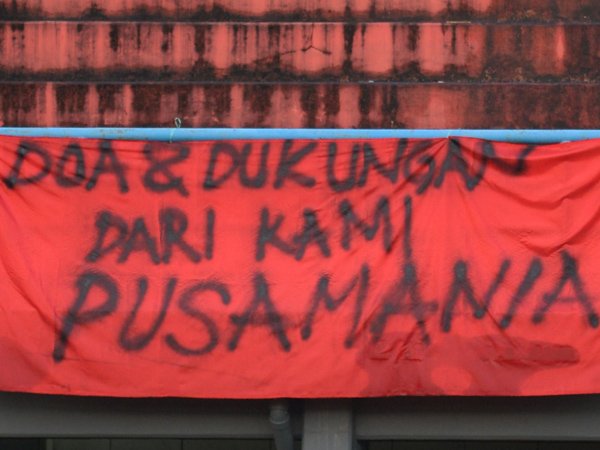 DOA & DUKUNGAN
DARI KAMI
PUSAMANIA